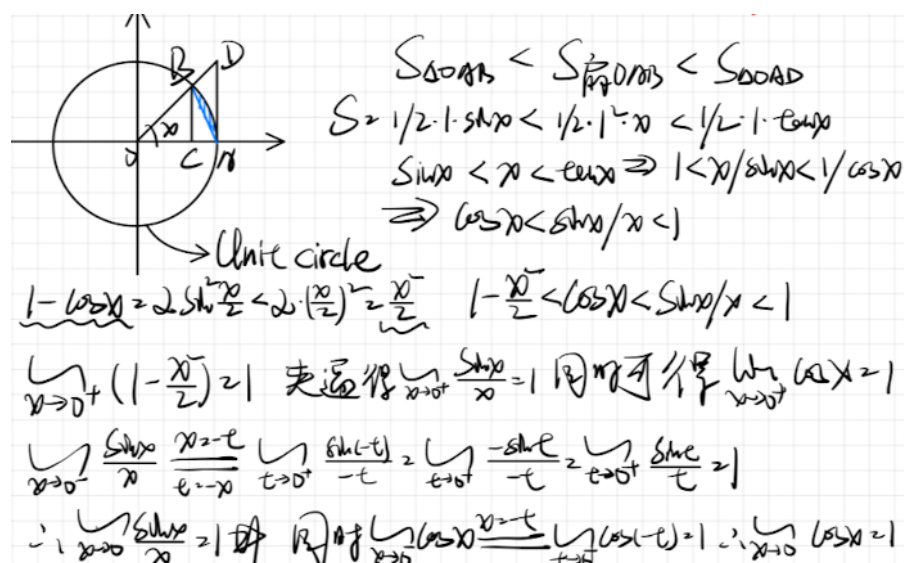 B D
x
O C A
S△OAB < S扇OAB < S△OAD
S= 1/2·1·sinx < 1/2·1²·x < 1/2·1·tanx
sinx < x < tanx ⇒ 1<x/sinx<1/cosx
⇒ cosx<sinx/x<1
Unit circle
1-cosx=2sin²x/2<2·(x/2)²=x²/2 1-x²/2<cosx<sinx/x<1
lim x→0⁺ (1-x²/2)=1 夹逼得 lim x→0⁺ sinx/x=1 同时可得 lim x→0⁺ cosx=1
lim x→0⁻ sinx/x x=-t t=-x lim t→0⁺ sin(-t)/-t = lim t→0⁺ -sint/-t = lim t→0⁺ sint/t =1
∴ lim x→0 sinx/x =1 同时 lim x→0⁻ cosx x=-t lim cos(-t)=1 ∴ lim x→0 cosx=1